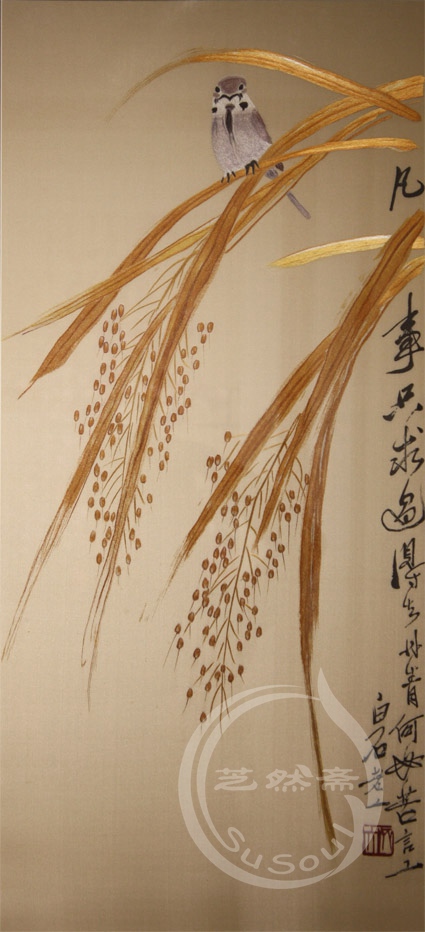 凡事只求过得去丹青何必苦言工
白石老人
芝然斋
SuSou